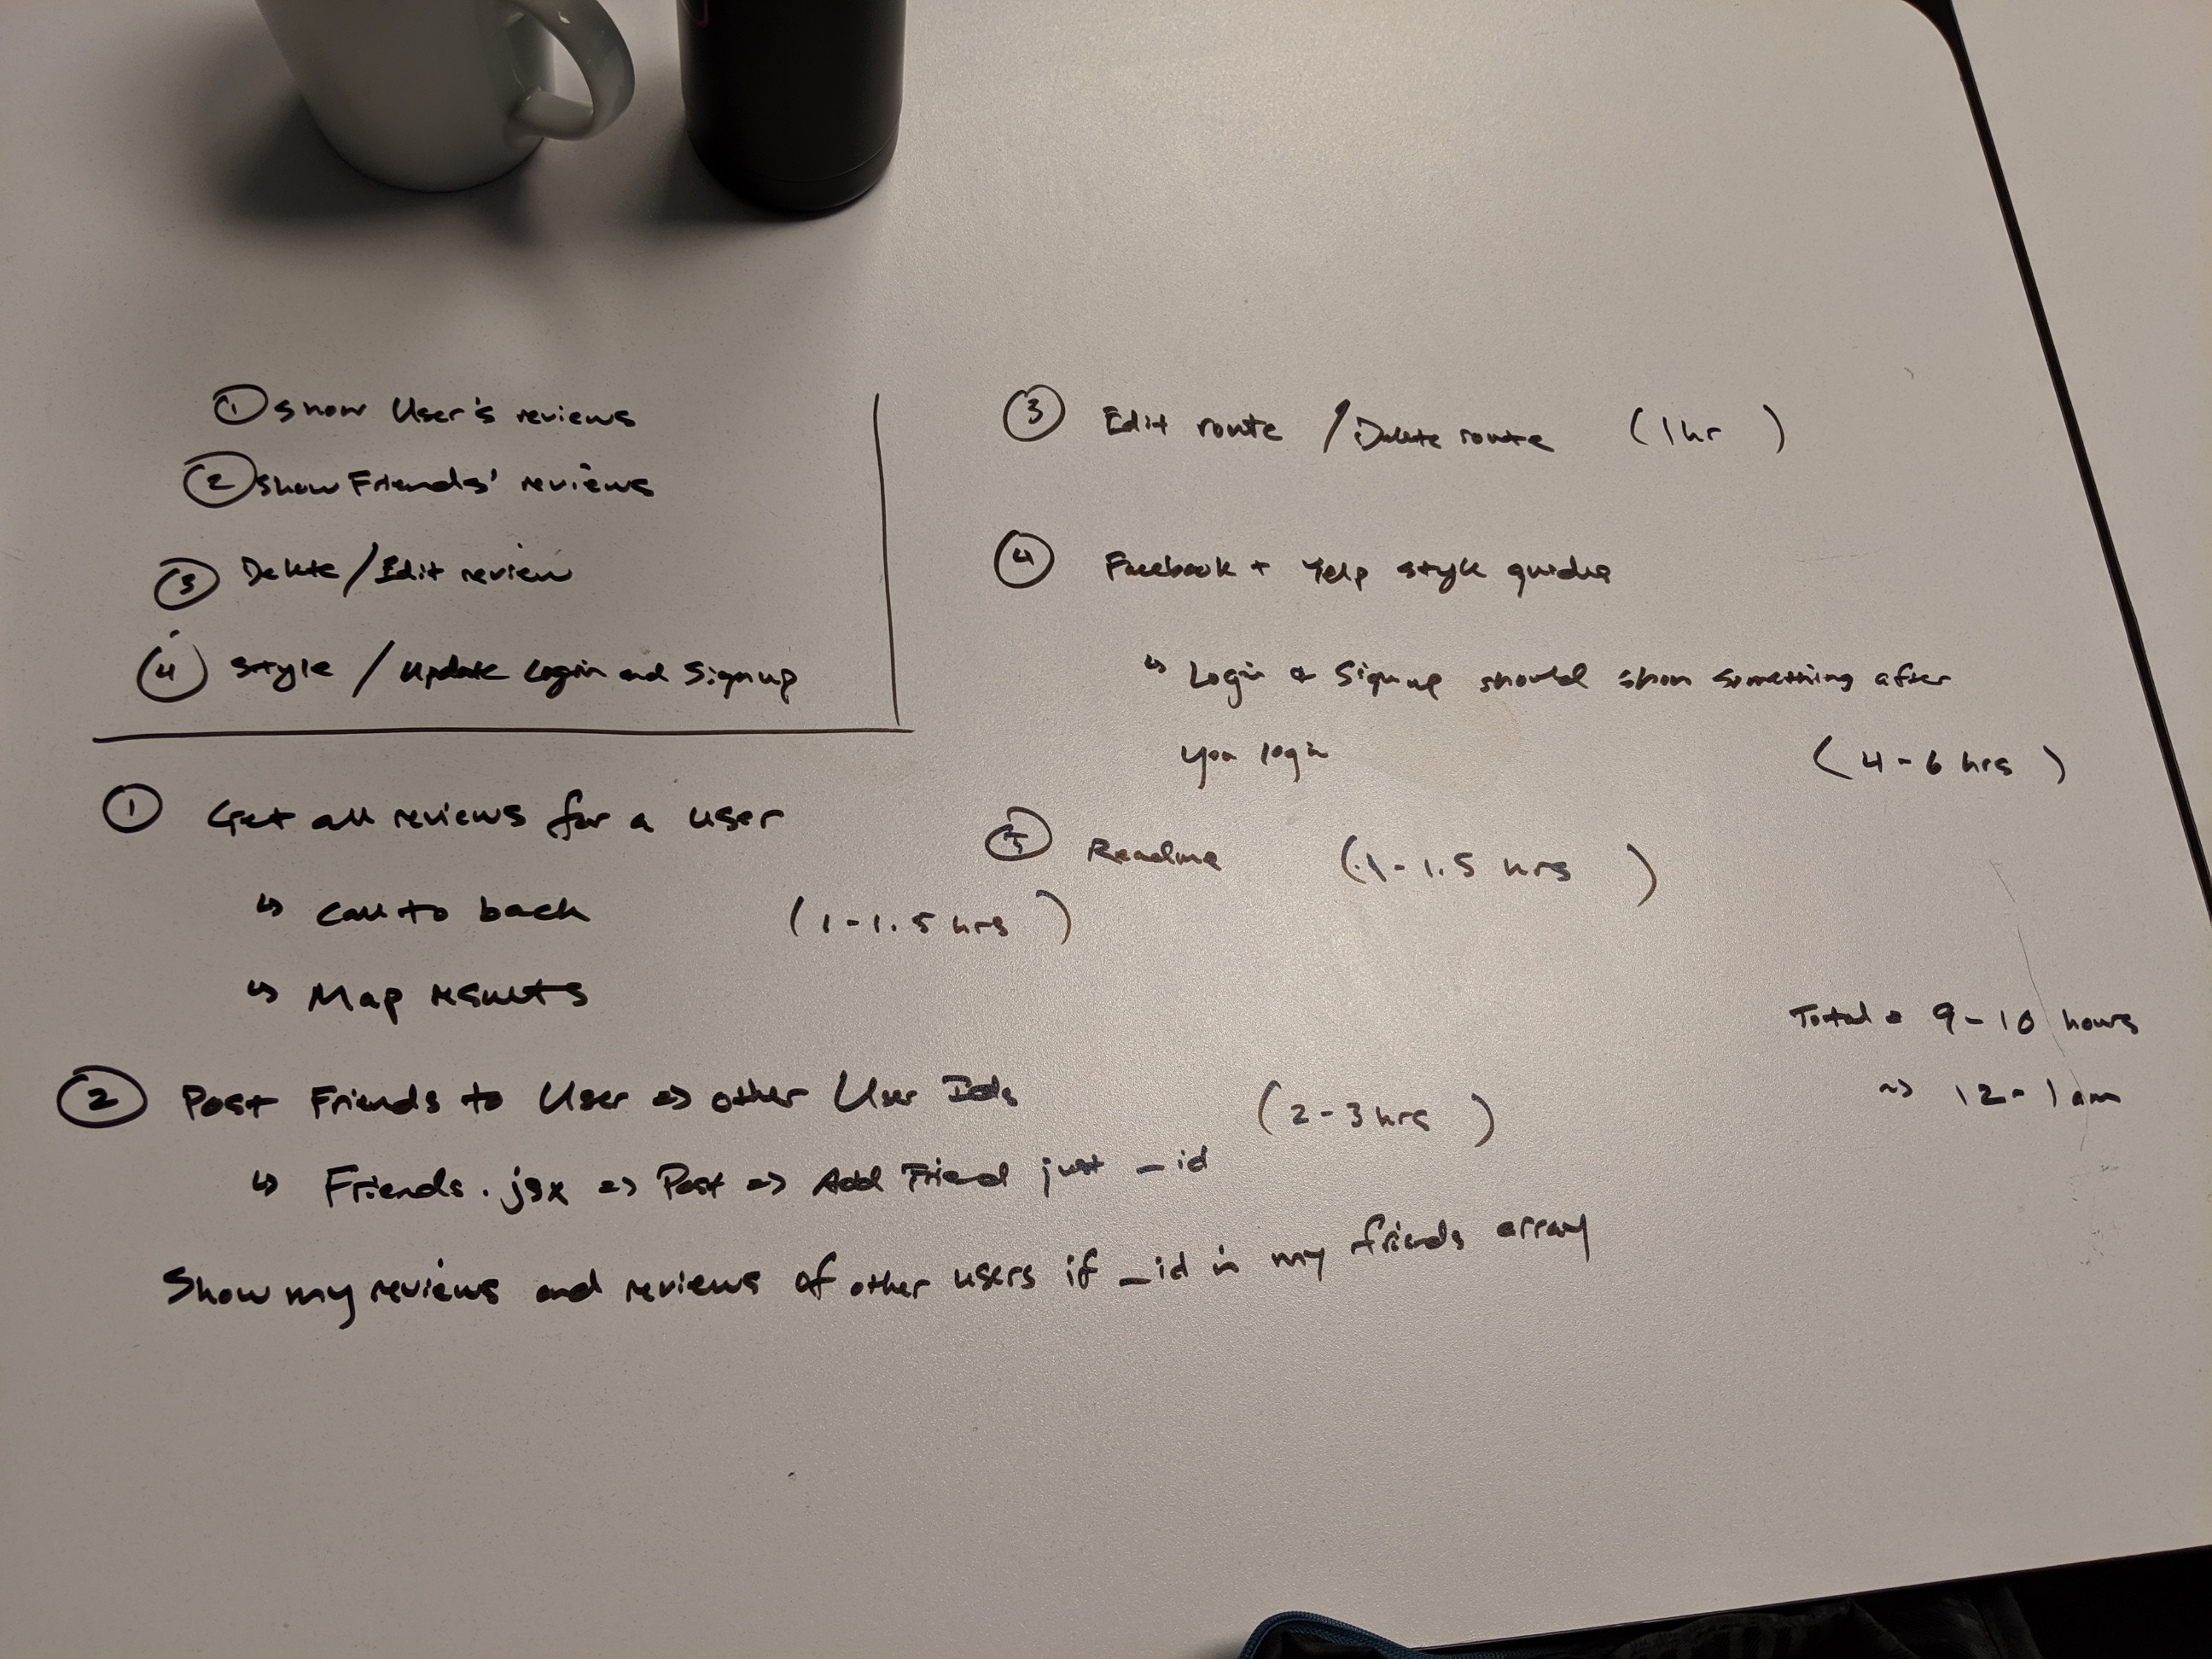 ① Show User's reviews
② Show Friends' reviews
③ Delete/Edit review
④ Style / Update Login and Signup
① Get all reviews for a user
↳ Call to back (1-1.5 hrs)
↳ Map results
② Post Friends to User => other User Ids (2-3 hrs)
↳ Friends.jsx => Post => Add Friend just _id
Show my reviews and reviews of other users if _id in my friends array
③ Edit route / Delete route (1 hr)
④ Facebook + Yelp style guides
↳ Login & Signup should show something after
you login (4-6 hrs)
⑤ Readme (1-1.5 hrs)
Total = 9-10 hours
~> 12-1am